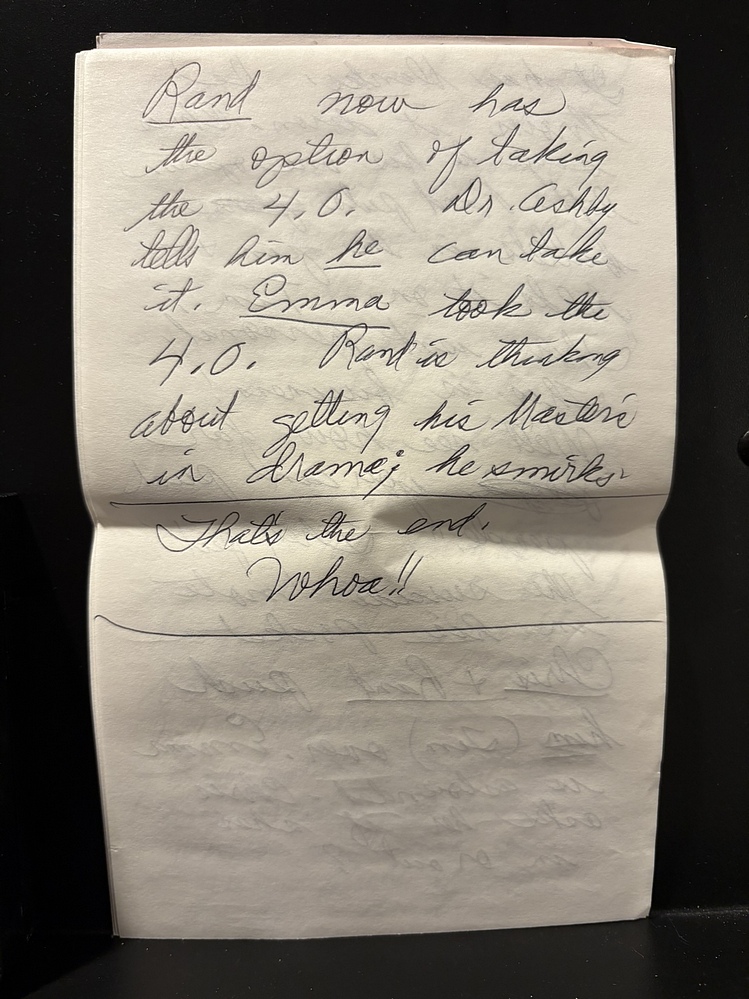 Rand now has
the option of taking
the 4.0. Dr. Ashby
tells him he can take
it. Emma took the
4.0. Rand is thinking
about getting his Master's
in drama; he smirks.
That's the end.
Whoa!!